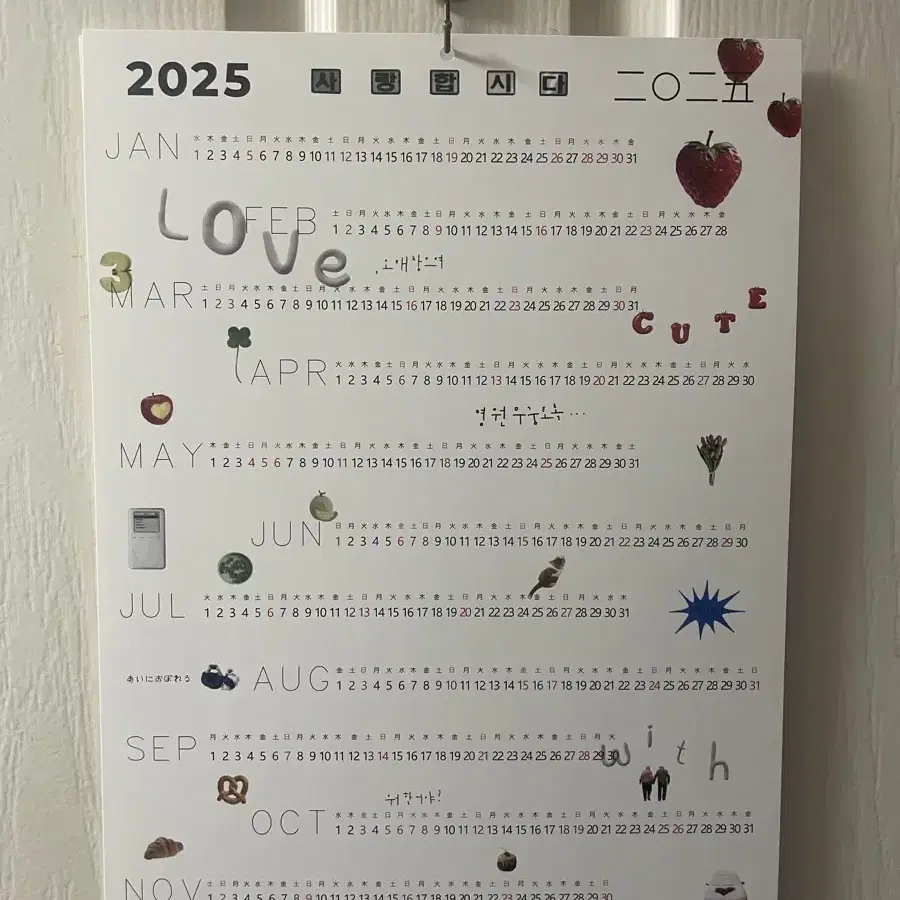 2025 사랑합시다 二〇二五
水 木 金 土 日 月 火 水 木 金 土 日 月 火 水 木 金 土 日 月 火 水 木 金 土 日 月 火 水 木 金
JAN 1 2 3 4 5 6 7 8 9 10 11 12 13 14 15 16 17 18 19 20 21 22 23 24 25 26 27 28 29 30 31
土 日 月 火 水 木 金 土 日 月 火 水 木 金 土 日 月 火 水 木 金 土 日 月 火 水 木 金
FEB 1 2 3 4 5 6 7 8 9 10 11 12 13 14 15 16 17 18 19 20 21 22 23 24 25 26 27 28
LOVe
3
土 日 月 火 水 木 金 土 日 月 火 水 木 金 土 日 月 火 水 木 金 土 日 月 火 水 木 金 土 日 月
MAR 1 2 3 4 5 6 7 8 9 10 11 12 13 14 15 16 17 18 19 20 21 22 23 24 25 26 27 28 29 30 31
CUTE
火 水 木 金 土 日 月 火 水 木 金 土 日 月 火 水 木 金 土 日 月 火 水 木 金 土 日 月 火 水
APR 1 2 3 4 5 6 7 8 9 10 11 12 13 14 15 16 17 18 19 20 21 22 23 24 25 26 27 28 29 30
영원무궁토록...
木 金 土 日 月 火 水 木 金 土 日 月 火 水 木 金 土 日 月 火 水 木 金 土 日 月 火 水 木 金 土
MAY 1 2 3 4 5 6 7 8 9 10 11 12 13 14 15 16 17 18 19 20 21 22 23 24 25 26 27 28 29 30 31
日 月 火 水 木 金 土 日 月 火 水 木 金 土 日 月 火 水 木 金 土 日 月 火 水 木 金 土 日 月
JUN 1 2 3 4 5 6 7 8 9 10 11 12 13 14 15 16 17 18 19 20 21 22 23 24 25 26 27 28 29 30
火 水 木 金 土 日 月 火 水 木 金 土 日 月 火 水 木 金 土 日 月 火 水 木 金 土 日 月 火 水 木
JUL 1 2 3 4 5 6 7 8 9 10 11 12 13 14 15 16 17 18 19 20 21 22 23 24 25 26 27 28 29 30 31
金 土 日 月 火 水 木 金 土 日 月 火 水 木 金 土 日 月 火 水 木 金 土 日 月 火 水 木 金 土 日
あいにおぼれる AUG 1 2 3 4 5 6 7 8 9 10 11 12 13 14 15 16 17 18 19 20 21 22 23 24 25 26 27 28 29 30 31
月 火 水 木 金 土 日 月 火 水 木 金 土 日 月 火 水 木 金 土 日 月 火 水 木 金 土 日 月 火
SEP 1 2 3 4 5 6 7 8 9 10 11 12 13 14 15 16 17 18 19 20 21 22 23 24 25 26 27 28 29 30
with
水 木 金 土 日 月 火 水 木 金 土 日 月 火 水 木 金 土 日 月 火 水 木 金 土 日 月 火 水 木 金
OCT 1 2 3 4 5 6 7 8 9 10 11 12 13 14 15 16 17 18 19 20 21 22 23 24 25 26 27 28 29 30 31
土 日 月 火 水 木 金 土 日 月 火 水 木 金 土 日 月 火 水 木 金 土 日 月 火 水 木 金 土 日
NOV